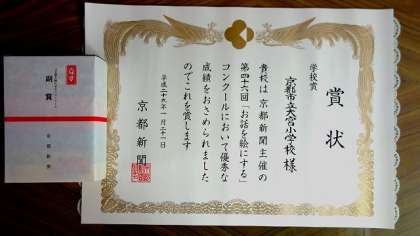 賞状
学校賞
京都市立大宅小学校様
貴校は京都新聞主催の
第四十六回「お話を絵にする」
コンクールにおいて優秀な
成績をおさめられました
のでこれを賞します
平成二十六年一月二十一日
京都新聞
副賞
京都新聞